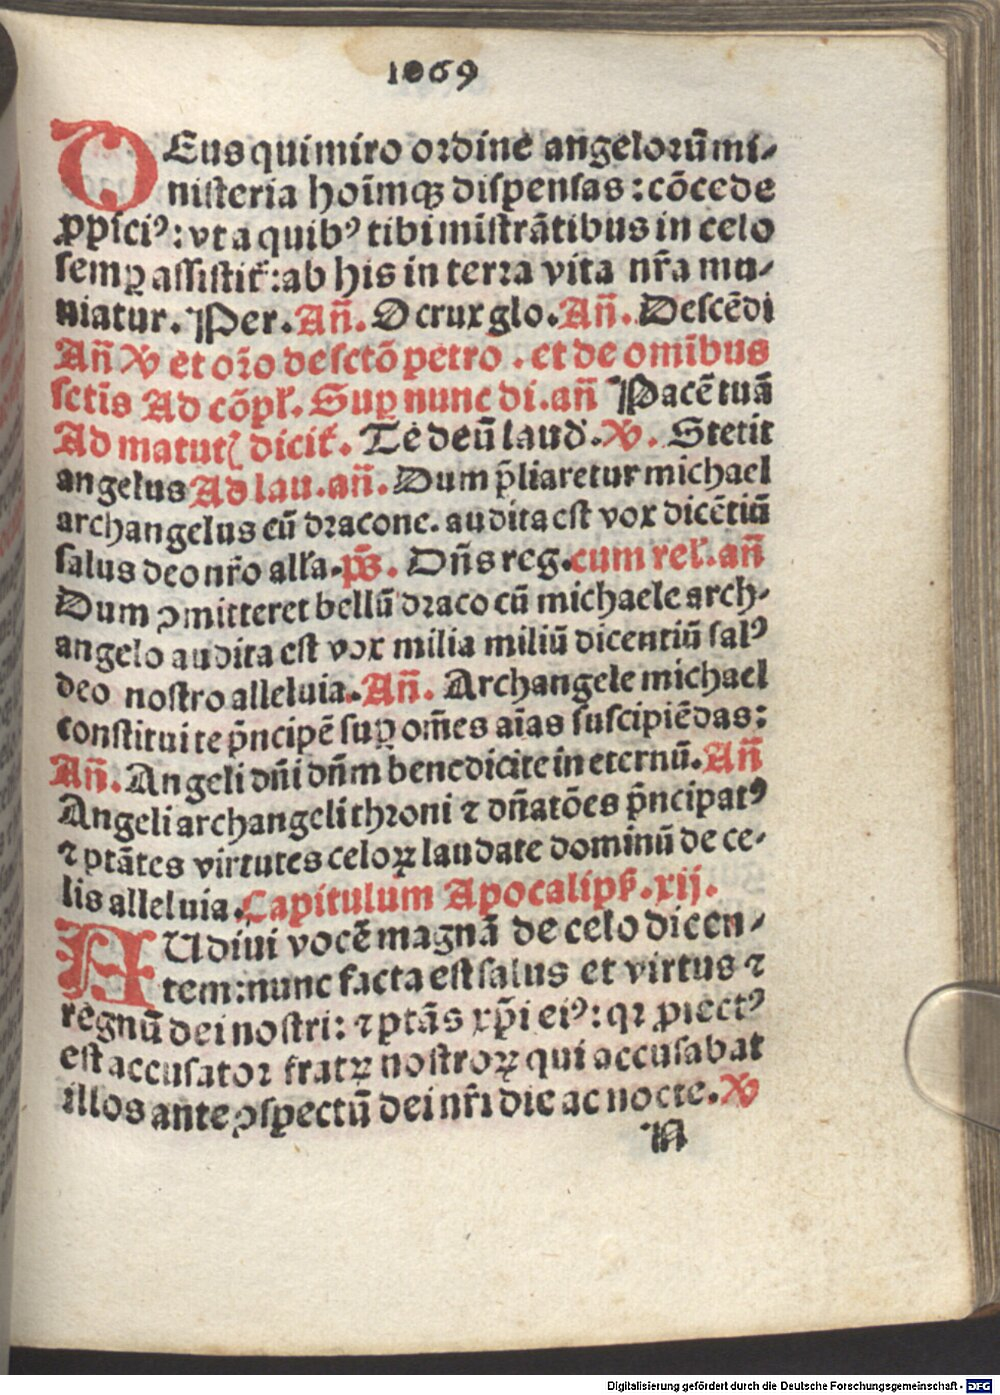 1069
DEus qui miro ordine angeloꝝ̃ mi⸗
nisteria hoīmqꝫ dispensas: cōcede
ꝓpiciꝰ: vt a quibꝰ tibi mīstrātibus in celo
semꝑ assistit᷑: ab his in terra vita nr̄a mu⸗
niatur. Per. Añ. O crux glo. Añ. Descēdi
Añ ℣ et oꝛ̄o de sctō petro. et de omībus
sctīs Ad cōpł. Suꝑ nunc di. añ Pacē tuā
Ad matutꝭ dicit᷑. Te deū laud̄. ℣. Stetit
angelus Ad lau. añ. Dum p̄liaretur michael
archangelus cū dracone. audita est vox dicētiū
salus deo nr̄o alła. ps̄. Dñs reg. cum rel̄. añ
Dum ꝯmitteret bellū draco cū michaele arch⸗
angelo audita est vox milia miliū dicentiū salꝰ
deo nostro alleluia. Añ. Archangele michael
constitui te p̄ncipē suꝑ om̄es aīas suscipiēdas:
Añ. Angeli dñi dñm benedicite in eternū. Añ
Angeli archangeli throni ⁊ dñatōes p̄ncipatꝰ
⁊ ptātes virtutes celoꝝ laudate dominū de ce⸗
lis alleluia. Capitulum Apocalipß. xij.
AUdiui vocē magnā de celo dicen⸗
tem: nunc facta est salus et virtus ⁊
regnū dei nostri: ⁊ ptās xp̄i eiꝰ: qꝛ ꝓiectꝰ
est accusator fratꝝ nostroꝝ qui accusabat
illos ante ꝯspectū dei nr̄i die ac nocte. ℣
In
Digitalisierung gefördert durch die Deutsche Forschungsgemeinschaft - DFG